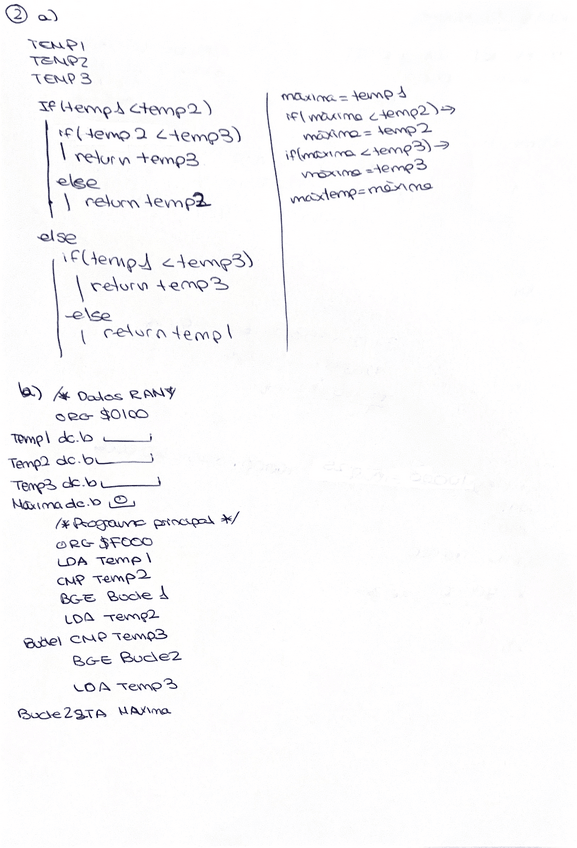 ② a)
TEMP1
TEMP2
TEMP3
If(temp1<temp2)
if(temp2<temp3)
return temp3
else
return temp2
else
if(temp1<temp3)
return temp3
else
return temp1
maxima=temp1
if(maxima<temp2)→
maxima=temp2
if(maxima<temp3)→
maxima=temp3
maxtemp=maxima
b) /* Datos RAM*/
ORG $0100
Temp1 dc.b
Temp2 dc.b
Temp3 dc.b
Maxima dc.b 0
/*Programa principal */
ORG $F000
LDA Temp1
CMP Temp2
BGE Bucle1
LDA Temp2
Bucle1 CMP Temp3
BGE Bucle2
LDA Temp3
Bucle2 STA Maxima